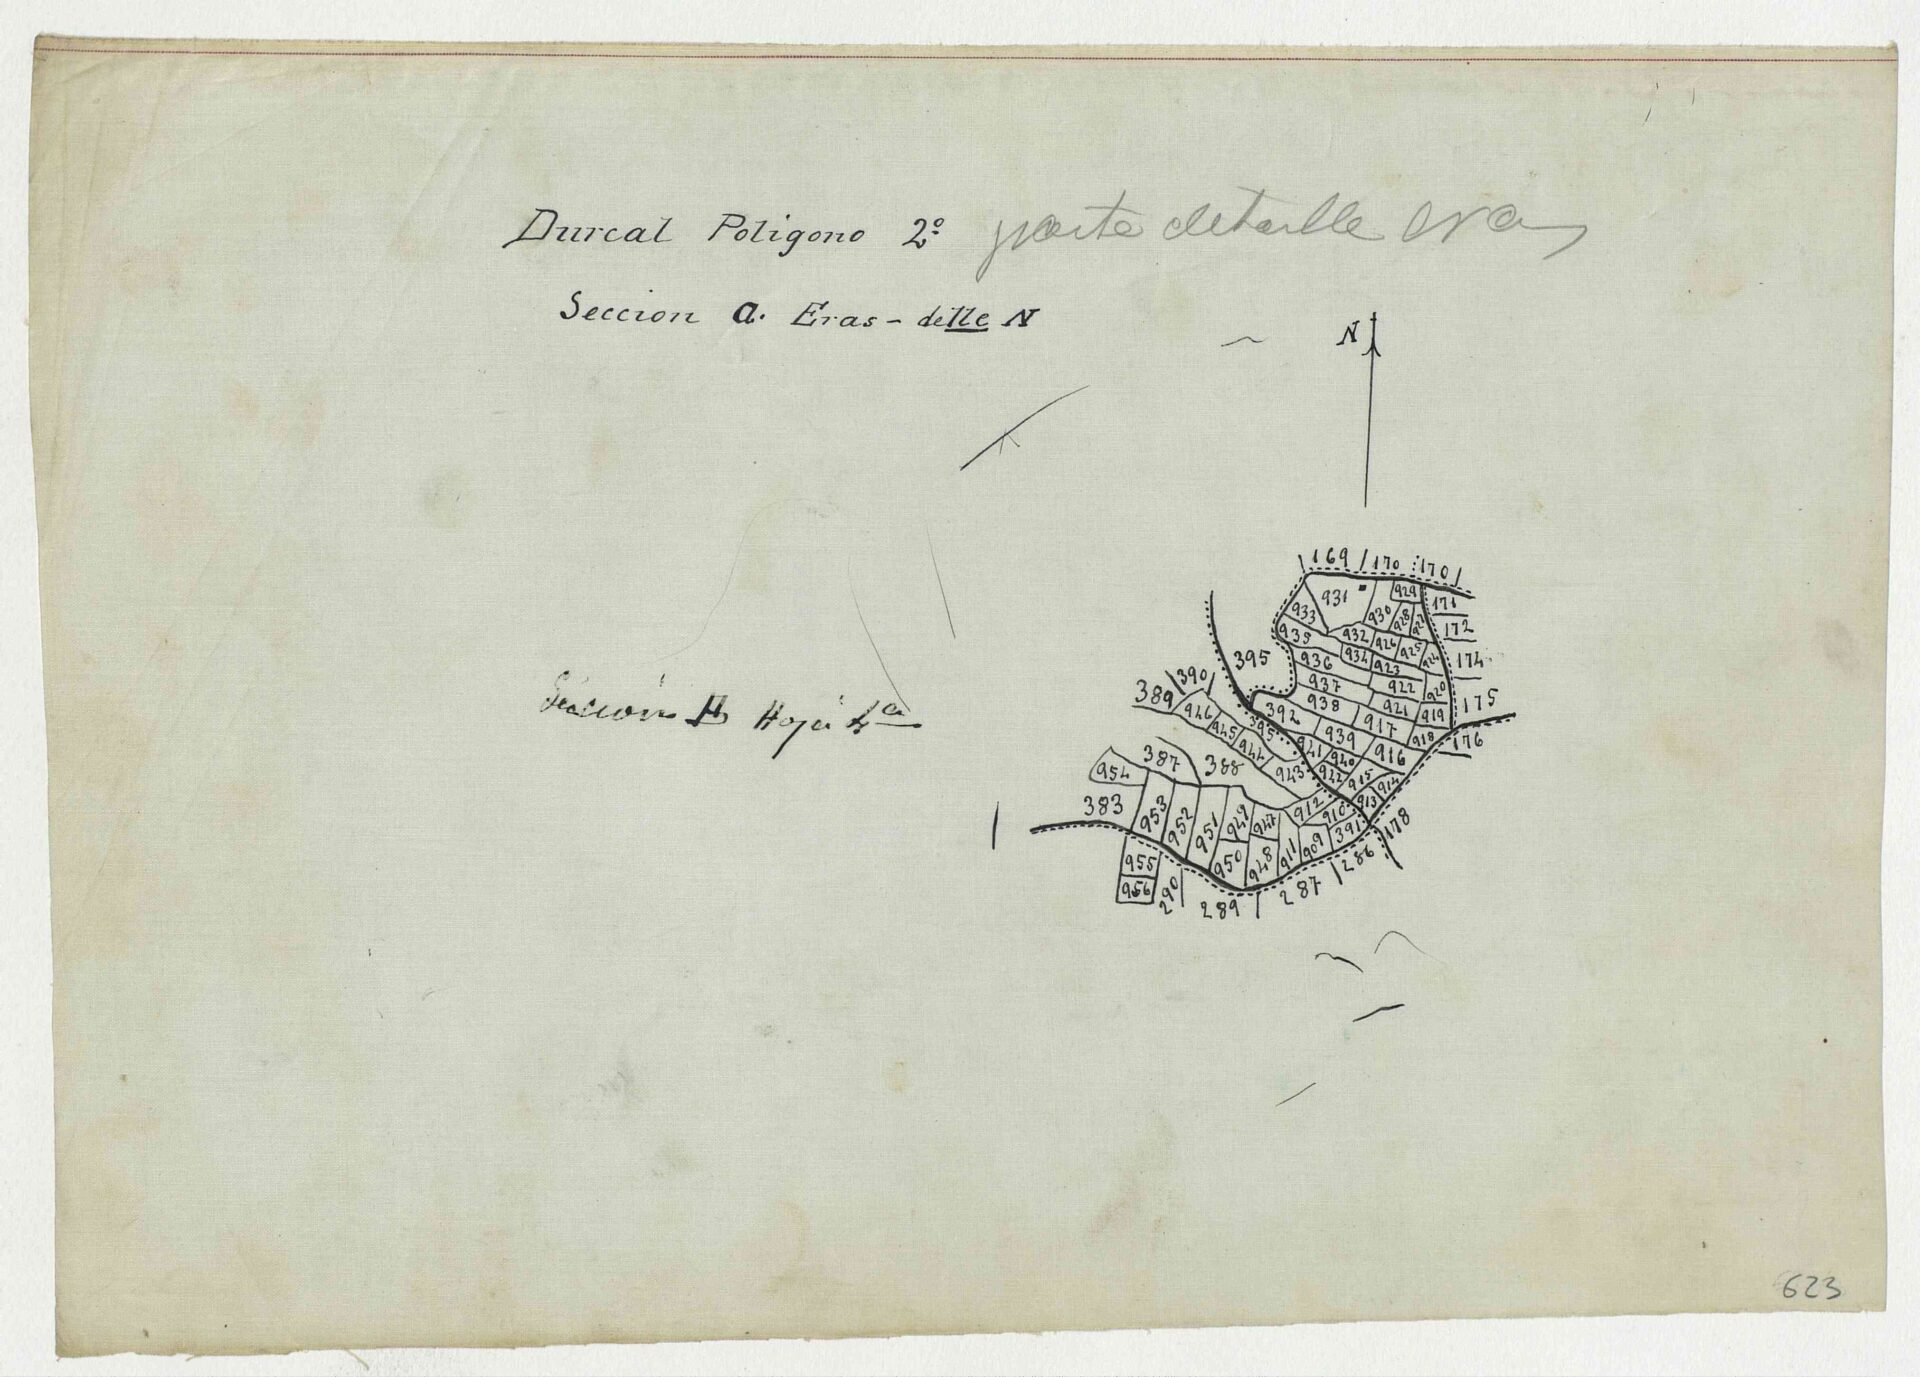 Durcal Poligono 2º parte detalle
Seccion a. Eras - delle N
N
Sección Hoja 4ª
169 170 170
931 929 171
933 930 928 927 172
935 932 926 925
395 936 934 923 924 174
390 937 922 920
389 938 921 919 175
946 392 917 918 176
945 395 939 916
944 941 940
387 388 943 942 915 914
954 912 913
383 953 952 951 949 947 910 391 178
955 950 948 911 909 286
956 290 289 287
623